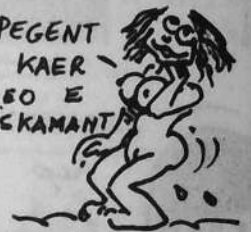 PEGENT
KAER
EO E
SKAMANT